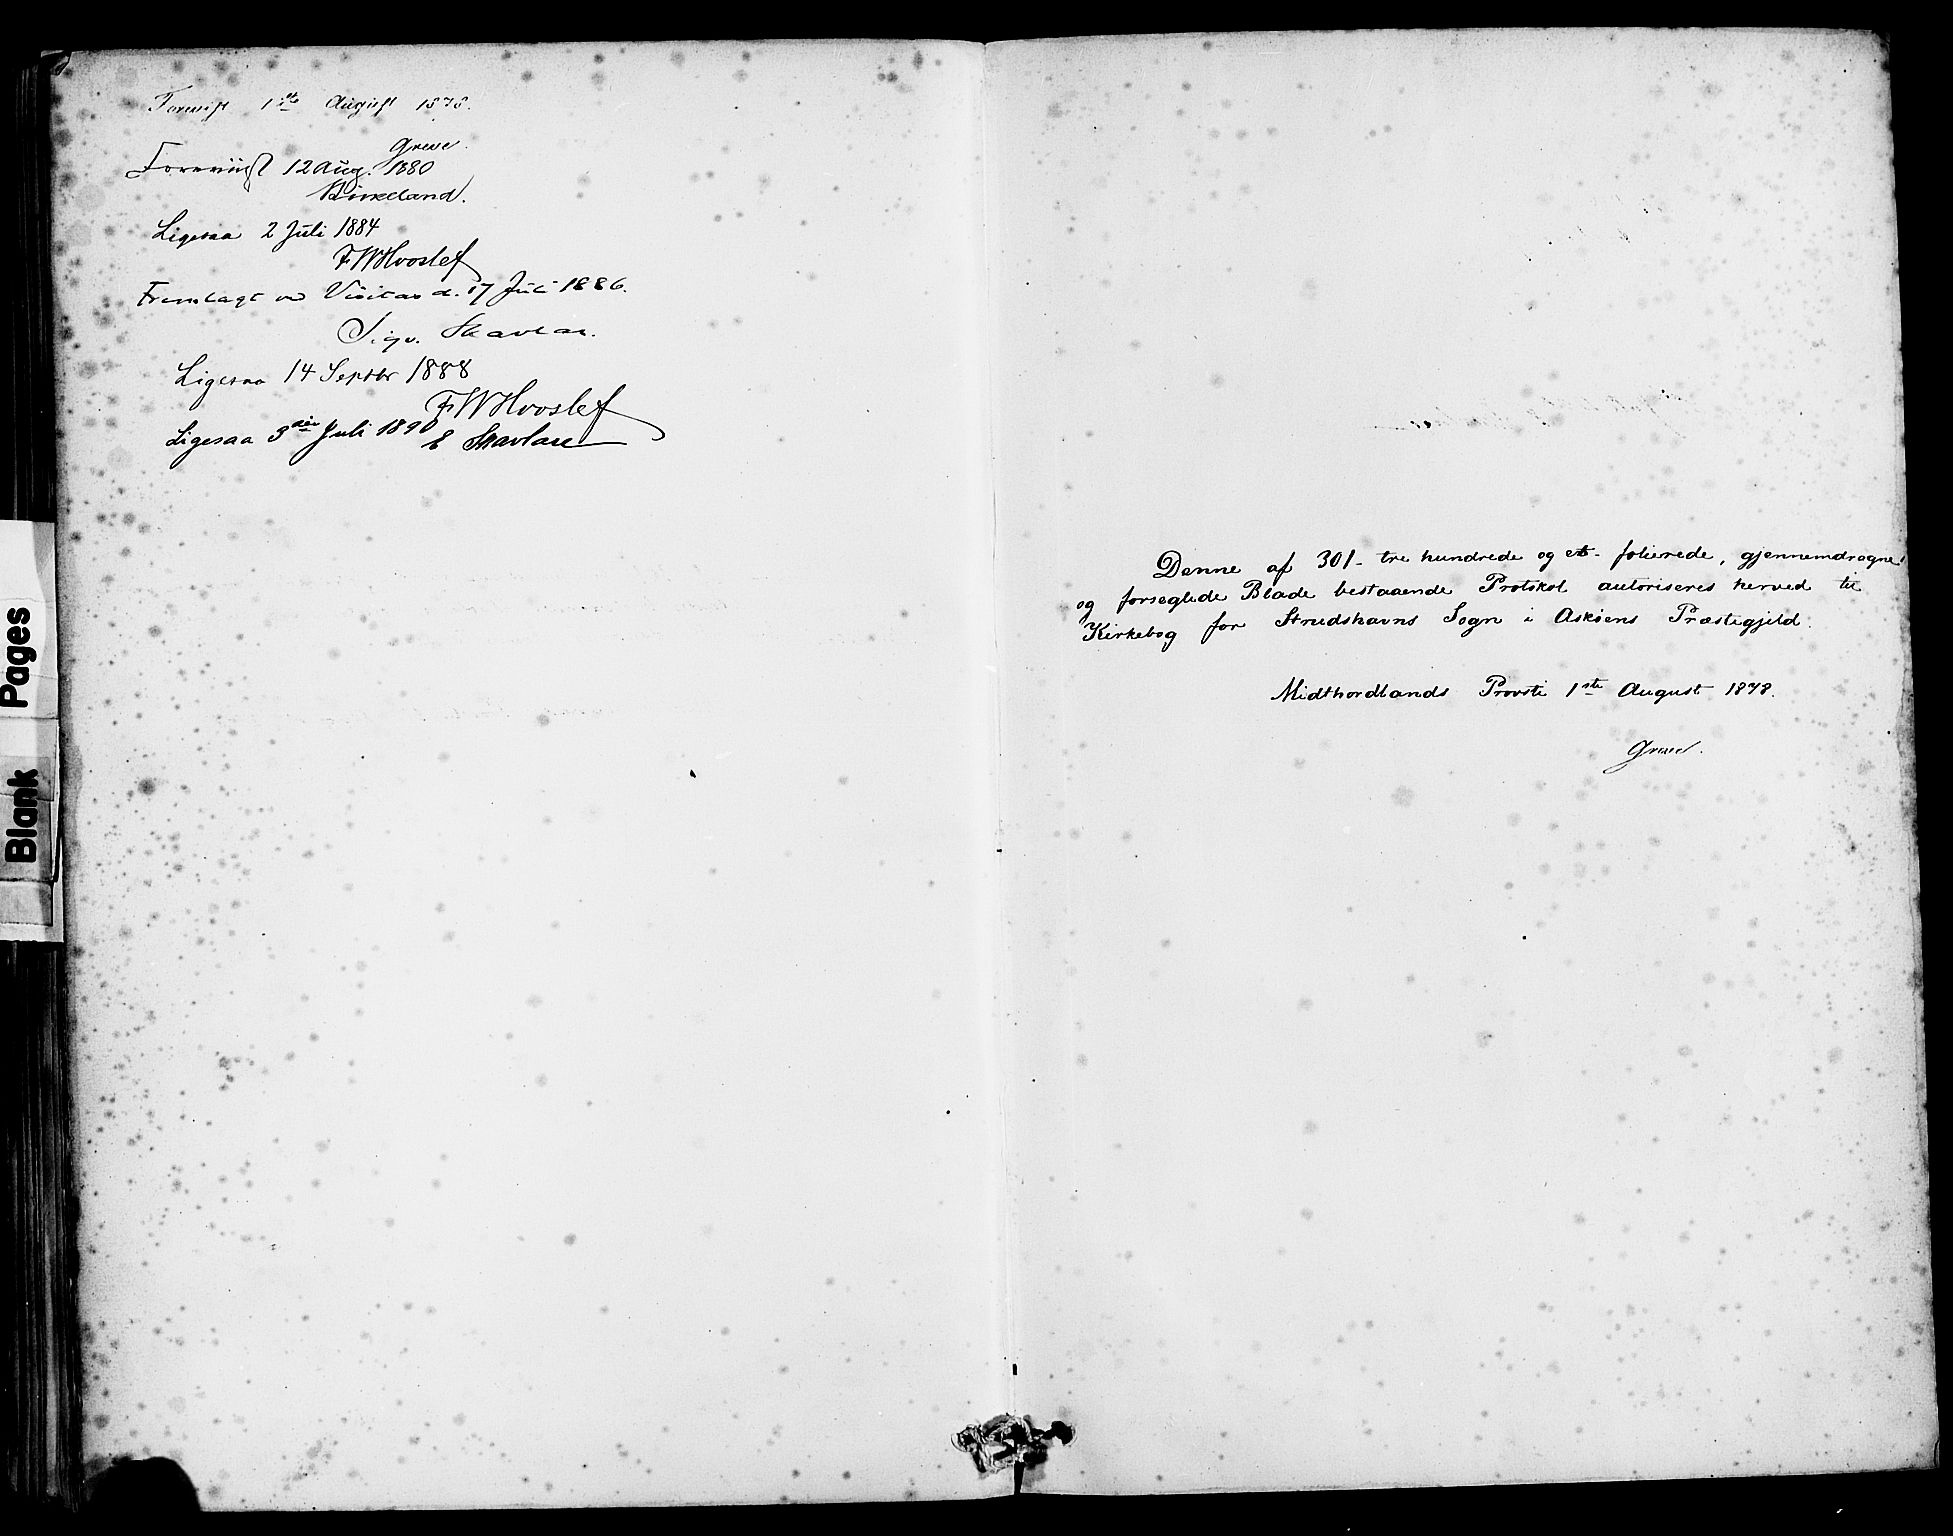 Forevist 1ste August 1878.
Greve.
Foreviist 12 Aug. 1880
Birkeland.
Ligesaa 2 Juli 1884
F W Hvoslef
Fremlagt ved Visitas d. 17 Juli 1886.
Sigv. Skavlan.
Ligesaa 14 Septbr 1888
F W Hvoslef
Ligesaa 3die Juli 1890 E Skavlan
Denne af 301 - tre hundrede og et - folierede, gjennemdragne
og forseglede Blade bestaaende Protokol autoriseres herved til
Kirkebog for Strudshavns Sogn i Askøens Præstegjeld.
Midthordlands Provsti 1ste August 1878.
Greve.
Blank Pages